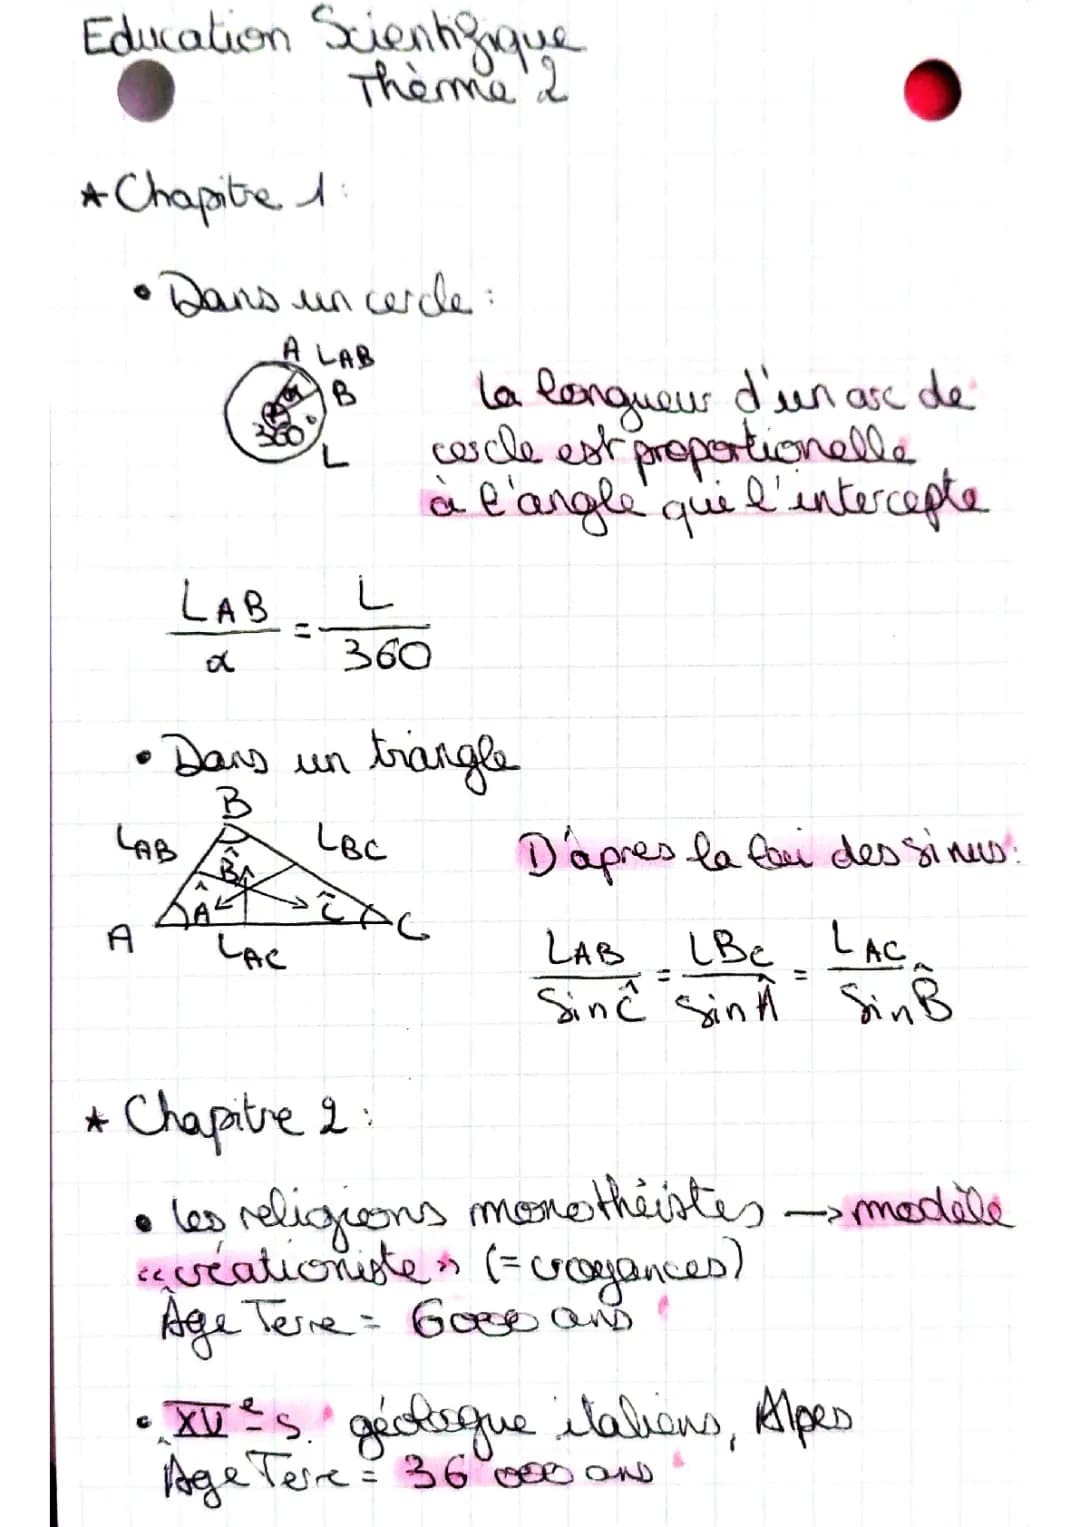 Education Scientifique
Thème 2
* Chapitre 1:
• Dans un cercle :
A LAB
B
α
360°
L
La longueur d'un arc de
cercle est proportionelle
à l'angle qui l'intercepte
LAB / α = L / 360
• Dans un triangle
B
LAB
LBC
B̂
Â
Ĉ
A
C
LAC
D'apres la loi des sinus:
LAB / Sin Ĉ = LBC / Sin Â = LAC / Sin B̂
* Chapitre 2 :
• les religions monothéistes → modèle
«créationiste» (= croyances)
Âge Terre = 6000 ans
• XVe s. géologue italiens, Alpes
Âge Terre = 36 000 ans